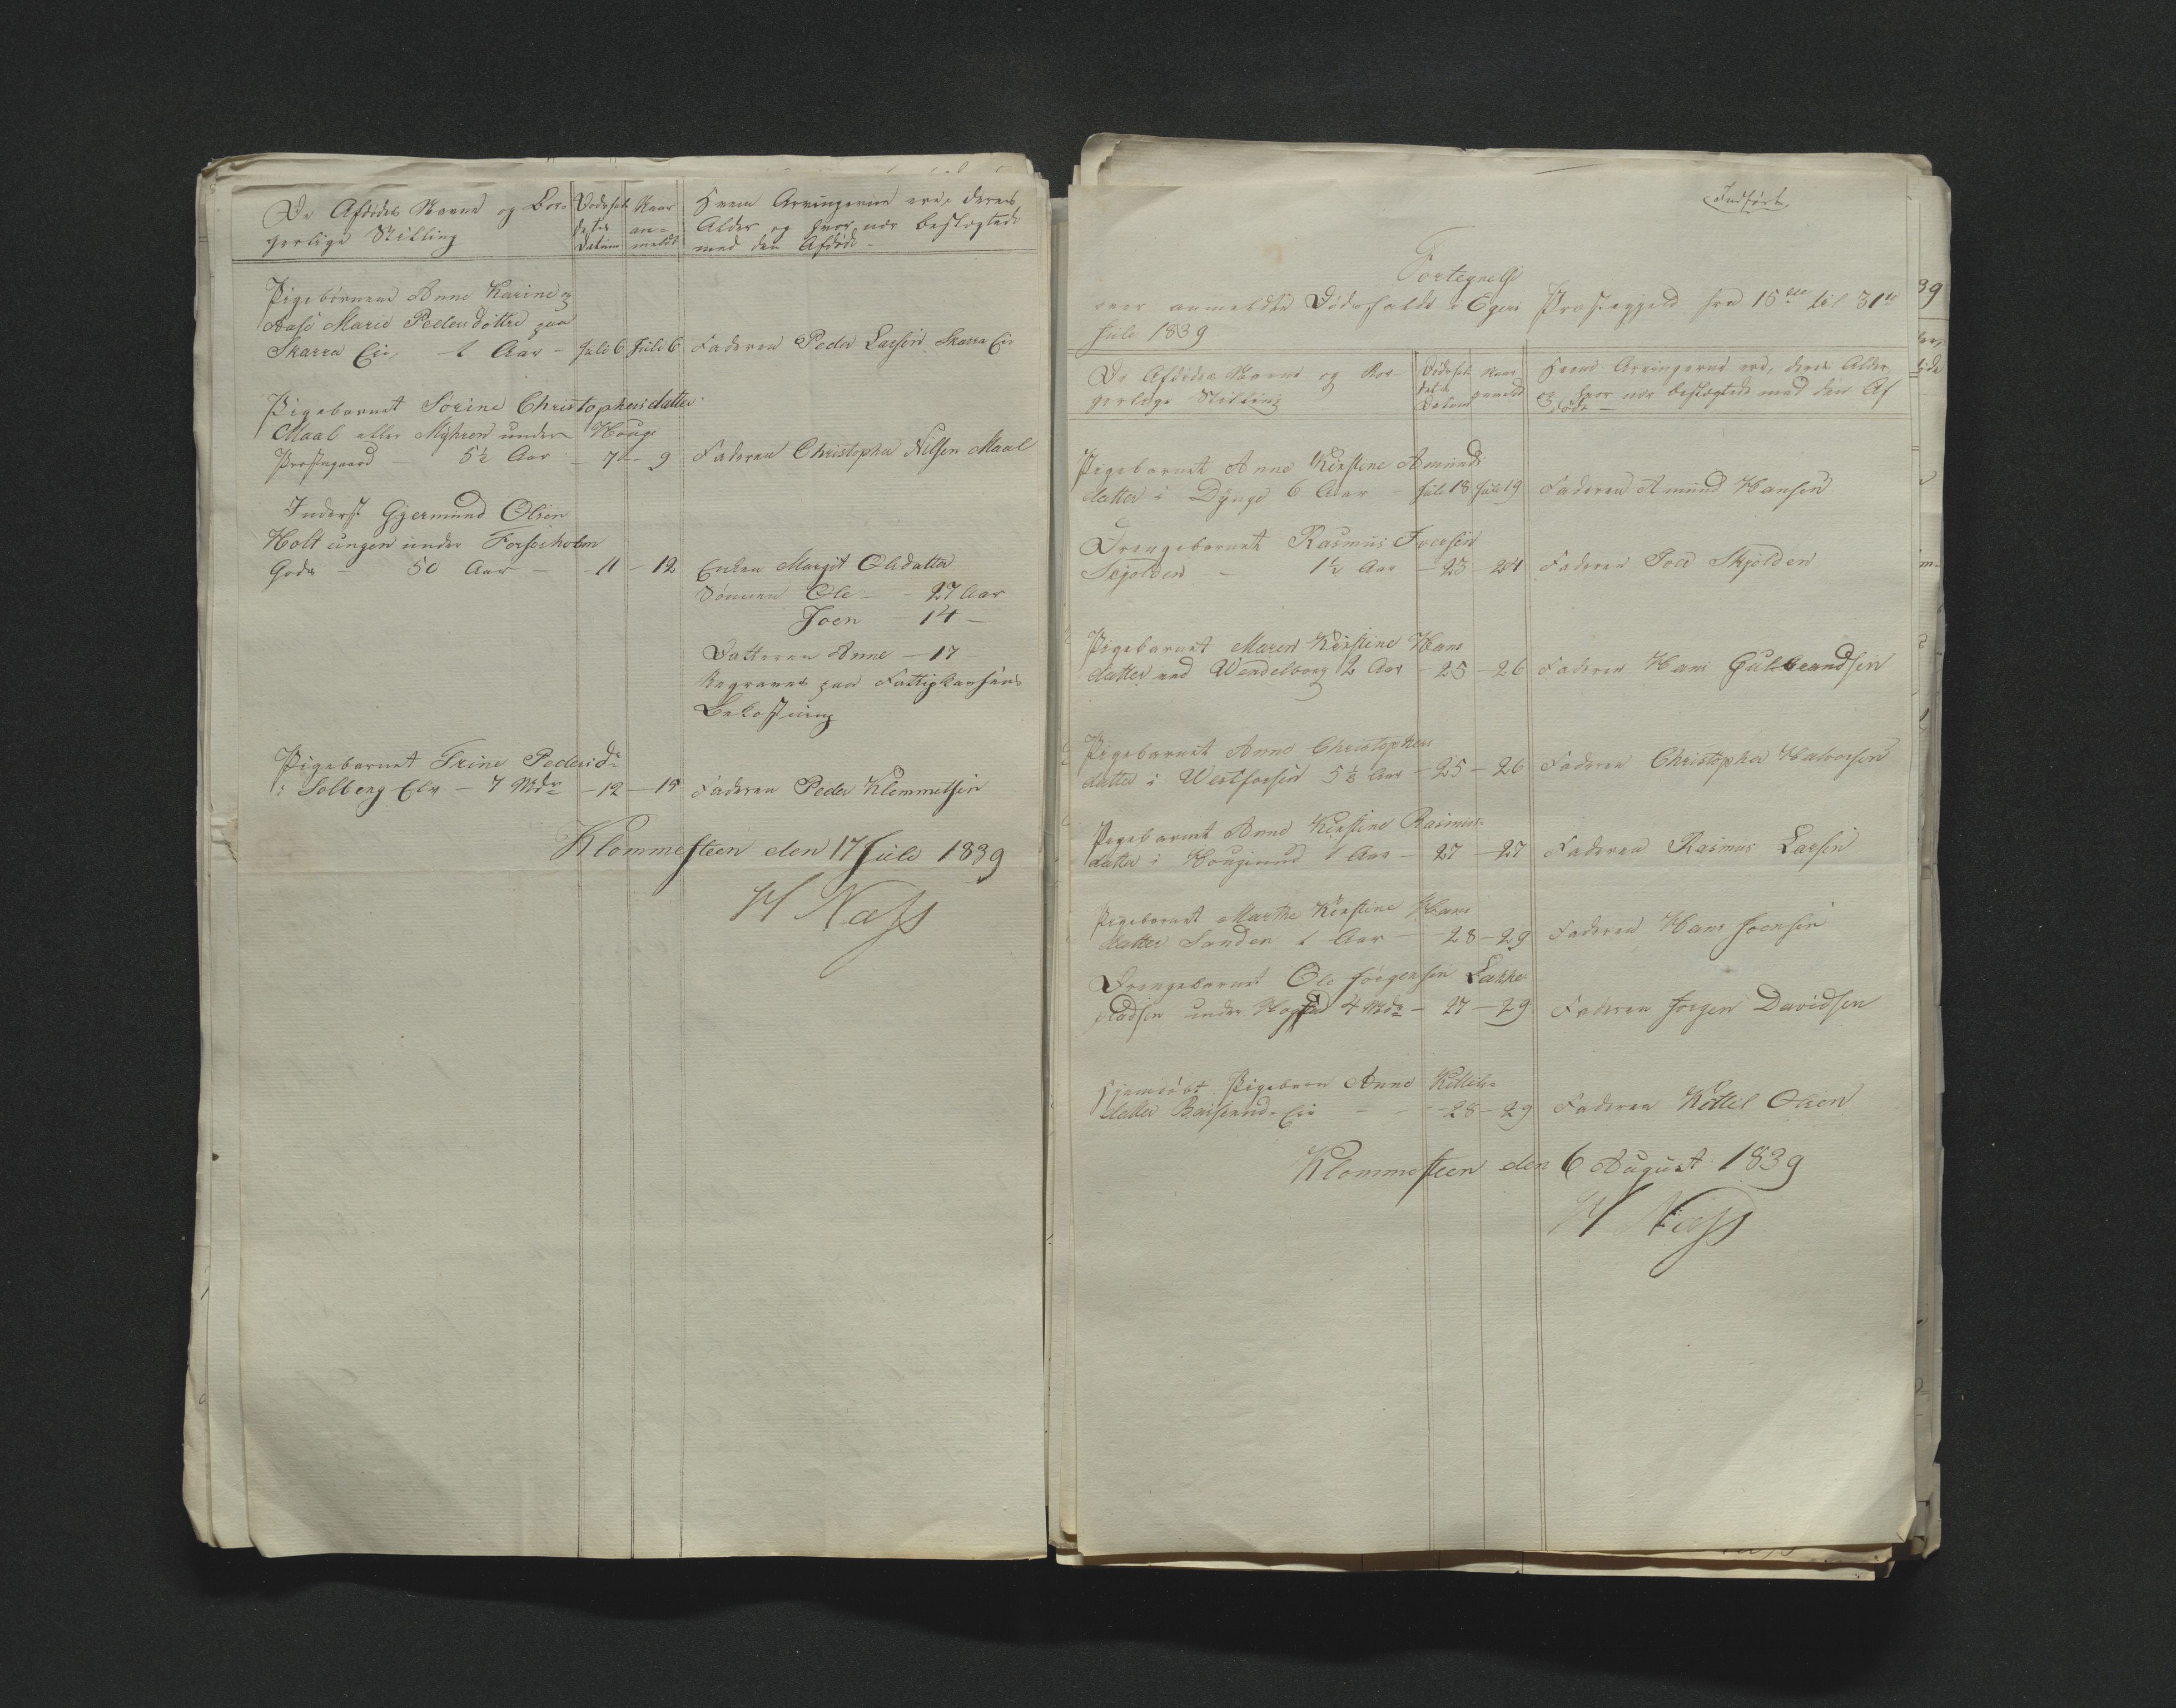 De Afdødes Navne og Bor-
gerlige Stilling
Dødsfal-
dets
Datum
Naar
an-
meldt
Hvem Arvingerne ere, deres
Alder og hvor nær beslægtede
med den Afdøde -
Pigebørnene Anne Karine og
Aase Marie Pedersdøttre paa
Skarra Eie, - 1 Aar - Juli 6 Juli 6 Faderen Peder Larsen Skarra Eie
Pigebarnet Sorine Christophersdatter
Maal eller Myhren under Houg
Præstegaard - 5½ Aar - 7 - 9 Faderen Christopher Nilsen Maal
Inderst Gjermund Olsen
Holtungen under Forsesholm
Gods - 50 Aar - 11 - 12 Enken Margit Olsdatter
Sønnen Ole - - 27 Aar
Joen - 14 -
Datteren Anne - 17 -
Begraves paa Fattigkassens
Bekostning
Pigebarnet Trine Pedersdr
i Solberg Elv - 7 Mdr - 12 - 15 Faderen Peder Klemmetsen
Klommesteen den 17 Juli 1839
H Næss
Indført
Fortegnelse
over anmeldte Dødsfalde i Egers Præstegjeld fra 15de til 31te
Juli 1839
De Afdødes Navne og Bor-
gerlige Stilling
Dødsfal-
dets
Datum
Naar
anmeldt
Hvem Arvingerne ere, deres Alder
og hvor nær beslægtede med den Af
døde -
Pigebarnet Anne Kirstine Amunds
datter i Dynge 6 Aar - Juli 18 Juli 19 Faderen Amund Hansen
Drengebarnet Rasmus Iversen
Skjolden - 1½ Aar - 23 - 24 Faderen Iver Skjolden
Pigebarnet Maren Kirstine Hans
datter ved Wendelborg 2 Aar - 25 - 26 Faderen Hans Gulbrandsen
Pigebarnet Anne Christophers
datter i Westfossen 5½ Aar - 25 - 26 Faderen Christopher Halvorsen
Pigebarnet Anne Kirstine Rasmus-
datter i Hougsund 1 Aar - 27 - 27 Faderen Rasmus Larsen
Pigebarnet Marthe Kirstine Hans
datter Sanden 1 Aar - 28 - 29 Faderen Hans Joensen
Drengebarnet Ole Jørgensen Lække
pladsen under 4 Mdr - 27 - 29 Faderen Jørgen Davidsen
Hjemdøbt Pigebarn Anne Kittils-
datter Eie - - - 28 - 29 Faderen Kittel Olsen
Klommesteen den 6 August 1839
H Næss